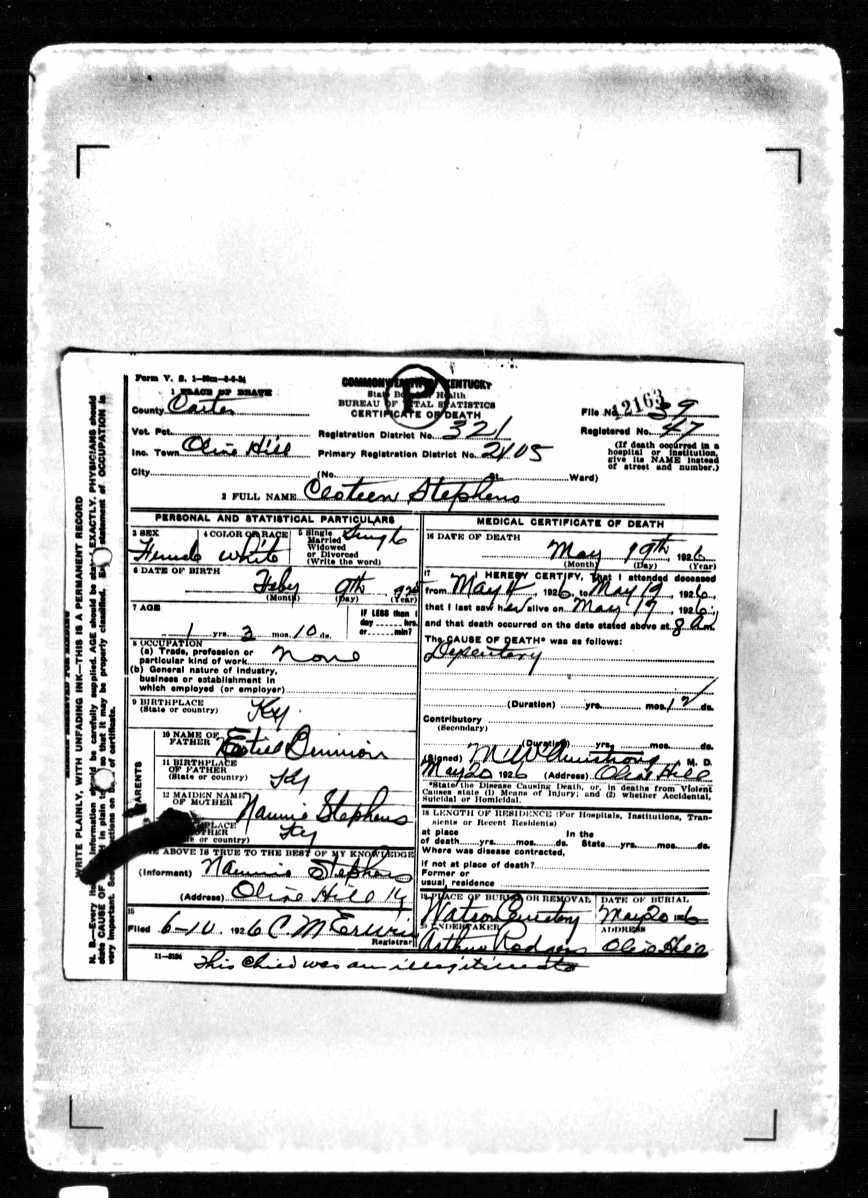 Form V. S. 1
1 PLACE OF DEATH
COMMONWEALTH OF KENTUCKY
State Board of Health
BUREAU OF VITAL STATISTICS
CERTIFICATE OF DEATH
12163
File No. 39
County Carter
Vot. Pct.
Registration District No. 321
Registered No. 47
Inc. Town Olive Hill
Primary Registration District No. 2405
(If death occurred in a hospital or institution, give its NAME instead of street and number.)
City (No. St. Ward)
2 FULL NAME Cloteen Stephens
PERSONAL AND STATISTICAL PARTICULARS
3 SEX
Female
4 COLOR OR RACE
White
5 Single Married Widowed or Divorced (Write the word)
Single
6 DATE OF BIRTH
Feby 9th
(Month) (Day) (Year)
7 AGE
1 yrs. 3 mos. 10 ds.
IF LESS than 1 day hrs. or min?
8 OCCUPATION
(a) Trade, profession or particular kind of work None
(b) General nature of industry, business or establishment in which employed (or employer)
9 BIRTHPLACE
(State or country)
Ky
PARENTS
10 NAME OF FATHER
11 BIRTHPLACE OF FATHER
(State or country)
Ky
12 MAIDEN NAME OF MOTHER
Nannie Stephens
Ky
ABOVE IS TRUE TO THE BEST OF MY KNOWLEDGE
(Informant) Nannie Stephens
(Address) Olive Hill Ky
15
Filed 6-10, 1926 C M Erwin
Registrar
11-3184
MEDICAL CERTIFICATE OF DEATH
16 DATE OF DEATH
May 19th, 1926
(Month) (Day) (Year)
17 I HEREBY CERTIFY, That I attended deceased
from May 4, 1926, to May 19, 1926,
that I last saw her alive on May 19, 1926,
and that death occurred on the date stated above at 8 am.
The CAUSE OF DEATH* was as follows:
Dysentery
(Duration) yrs. mos. 12 ds.
Contributory
(Secondary)
(Duration) yrs. mos. ds.
(Signed) M W Armstrong M. D.
May 20 1926 (Address) Olive Hill
*State the Disease Causing Death, or, in deaths from Violent Causes state (1) Means of Injury; and (2) whether Accidental, Suicidal or Homicidal.
18 LENGTH OF RESIDENCE (For Hospitals, Institutions, Transients or Recent Residents)
at place of death yrs. mos. ds. In the State yrs. mos. ds.
Where was disease contracted,
if not at place of death?
Former or usual residence
19 PLACE OF BURIAL OR REMOVAL
Watson Cemetery
DATE OF BURIAL
May 20 1926
20 UNDERTAKER
Arthur Rodgers
ADDRESS
Olive Hill
This child was an illegitimate
WRITE PLAINLY, WITH UNFADING INK—THIS IS A PERMANENT RECORD